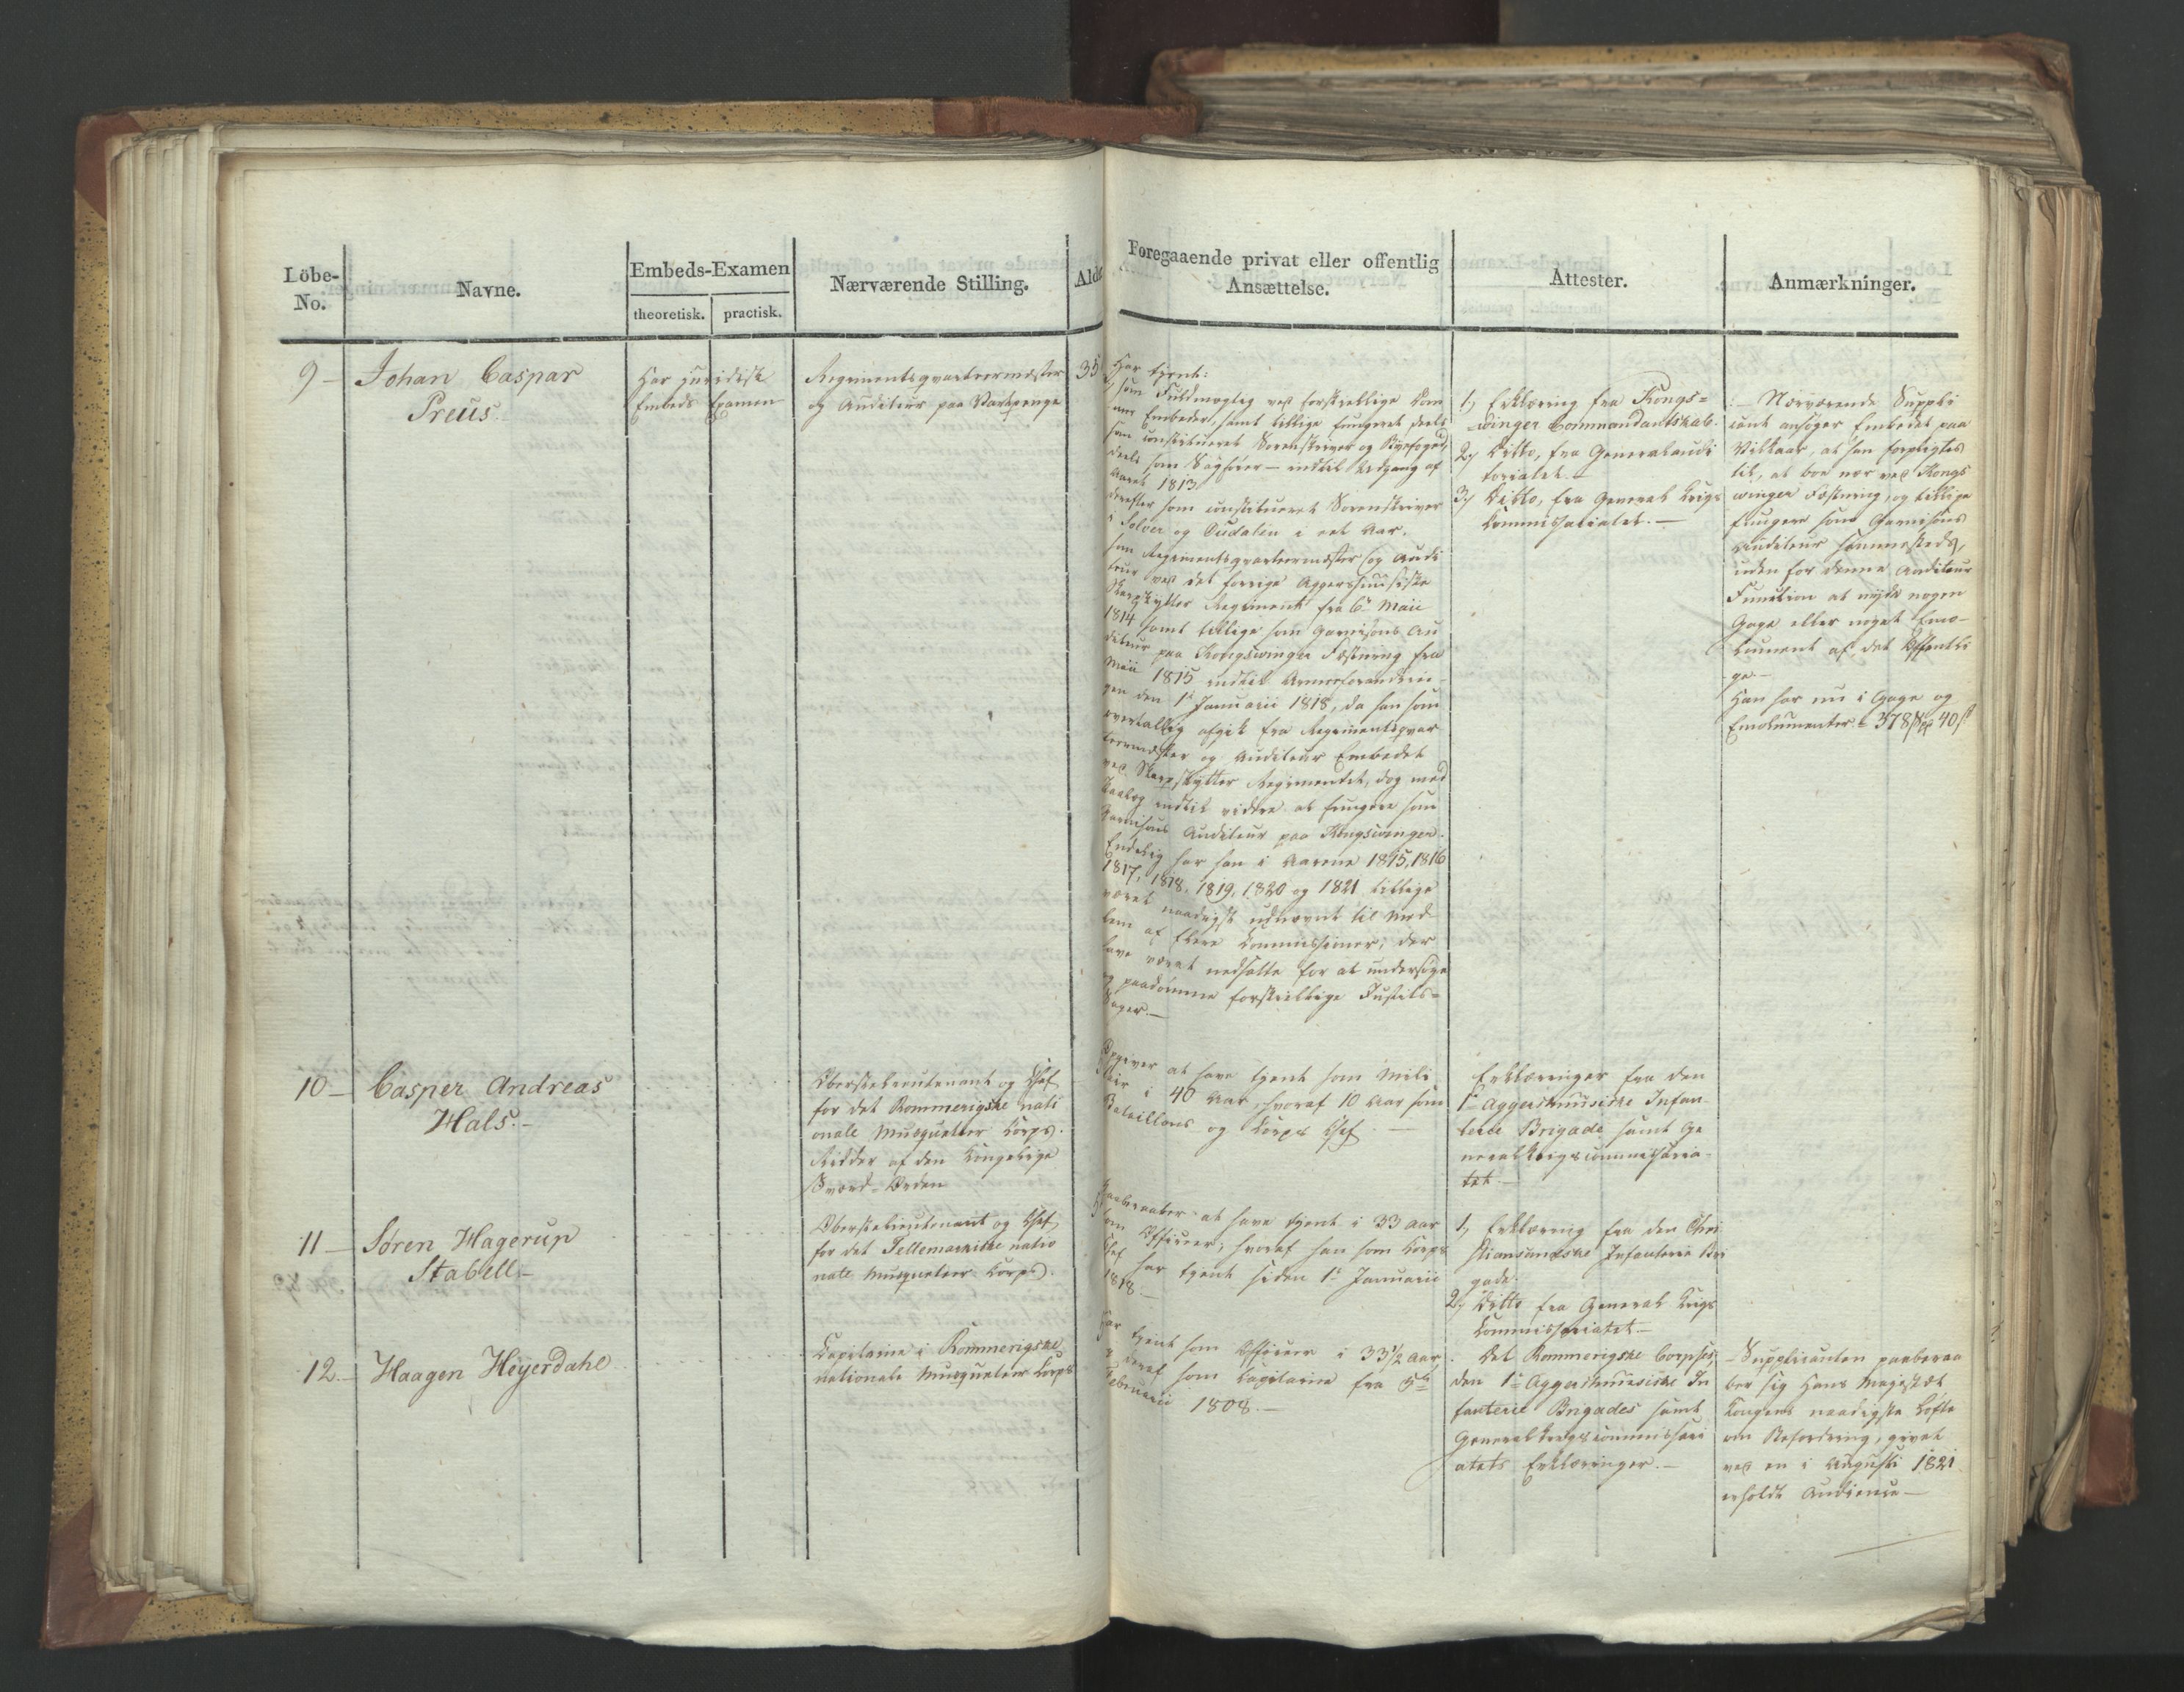 Löbe-
No.
Navne.
Embeds-Examen
theoretisk. practisk.
Nærværende Stilling.
Alde
Foregaaende privat eller offentlig
Ansættelse.
Attester.
Anmærkninger.
9 –
Johan Caspar
Preus.
Har juridisk
Embeds Examen
Regimentsqvarteermester
og Auditeur paa Vartpenge
35
Har tjent:
som Fuldmægtig ved forskiellige Civile
Embeder, samt tillige fungeret deels
som constitueret Sorenskriver og Byefoged,
deels som Sagfører – indtil Udgang af
Aaret 1813
derefter som constitueret Sorenskriver
i Soløer og Oudalen i eet Aar.
som Regimentsqvarteermester og Audi
teur ved det forrige Aggershuusiske
Skarpskytter Regiment fra 6te Maii
1814 samt tillige som Garnisons Au
diteur paa Kongswinger Fæstning fra
Maii 1815 indtil Armeeforandrin-
gen den 1te Januarii 1818, da han som
overtallig afgik fra Regimentsqvar
teermester og Auditeur Embedet
ved Skarpskytter Regimentet, dog med
Paalæg indtil videre at fungere som
Garnisons Auditeur paa Kongswinger.
Endelig har han i Aarene 1815, 1816
1817, 1818, 1819, 1820 og 1821 tillige
været naadigst udnævnt til Med
lem af flere Commissioner, der
have været nedsatte for at undersøge
og paadømme forskiellige Justits=
Sager. –
1, Erklæring fra Kongs=
winger Commandantskab.
2, Ditto, fra Generalaudi
toriatet. –
3, Ditto, fra General Krigs
Commissariatet. –
– Nærværende Suppli
cant ansøger Embedet paa
Vilkaar, at han forpligtes
til, at boe nær ved Kongs
winger Fæstning, og tillige
fungere som Garnisons
Auditeur sammesteds,
uden for denne Auditeur
Function at nyde nogen
Gage eller noget Emo-
lument af det Offentli
ge. –
Han har nu i Gage og
Emolumenter = 378 Spd 40 s
10 –
Casper Andreas
Hals. –
Oberstelieutenant og Chef
for det Rommerigske nati
onale Musqueteer Corps.
Ridder af den Kongelige
Sværd-Orden
Opgiver at have tjent som Mili
tair i 40 Aar, hvoraf 10 Aar som
Bataillons og Corps Chef. –
Erklæringer fra den
1te Aggershuusiske Infan-
terie Brigade samt Ge
neralkrigscommissaria-
tet. –
11 –
Sören Hagerup
Stabell –
Oberstelieutenant og Chef
for det Tellemarkske natio
nale Musqueteer Corps.
Paaberaaber at have tjent i 33 Aar
som Officeer, hvoraf han som Corps
Chef har tjent siden 1te Januarii
1818. –
1, Erklæring fra den Chri
stiansandske Infanterie Bri
gade.
2, Ditto fra General Krigs
Commissariatet –
12. –
Haagen Heyerdahl
Capitaine i Rommerigske
nationale Musqueteer Corps
Har tjent som Officeer i 33 1/2 Aar,
deraf som Capitaine fra 5te
Februarii 1808. –
Det Rommerigske Corpses,
den 1te Aggershuusiske In
fanterie Brigades samt
Generalkrigscommissari
atets Erklæringer. –
– Supplicanten paaberaa
ber sig Hans Majestæt
Kongens naadigste Løfte
om Befordring, givet
ved en i Augusti 1821
erholdt Audience –